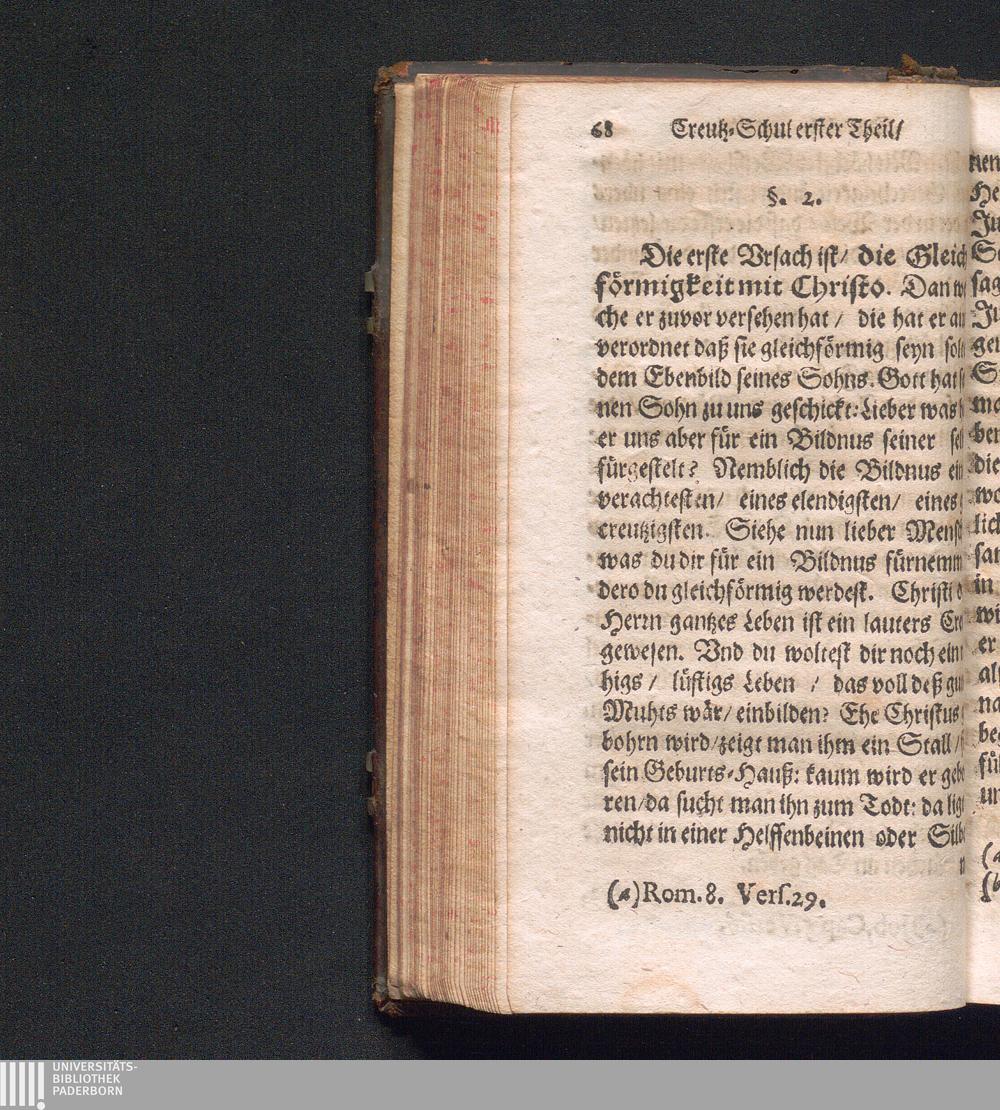 68 Creutz-Schul erster Theil/
§. 2.
Die erste Vrsach ist/ die Gleich
förmigkeit mit Christo. Dan
che er zuvor versehen hat / die hat er
verordnet daß sie gleichförmig seyn
dem Ebenbild seines Sohns. Gott hat
nen Sohn zu uns geschickt: Lieber was
er uns aber für ein Bildnus seiner
fürgestelt? Nemblich die Bildnus
verachtesten/ eines elendigsten/ eines
creutzigsten. Siehe nun lieber
was du dir für ein Bildnus
dero du gleichförmig werdest. Christi
Herrn gantzes Leben ist ein lauters
gewesen. Vnd du woltest dir noch ein
higs / lüstigs Leben / das voll deß
Muhts wär/ einbilden? Ehe Christus
bohrn wird/ zeigt man ihm ein Stall /
sein Geburts-Hauß: kaum wird er
ren/ da sucht man ihn zum Todt: da
nicht in einer Helffenbeinen oder
(a) Rom. 8. Vers. 29.
nen
He
Ju
sag
Ju
ge
ma
ben
die
wo
lich
in
wi
er
na
UNIVERSITÄTS-
BIBLIOTHEK
PADERBORN